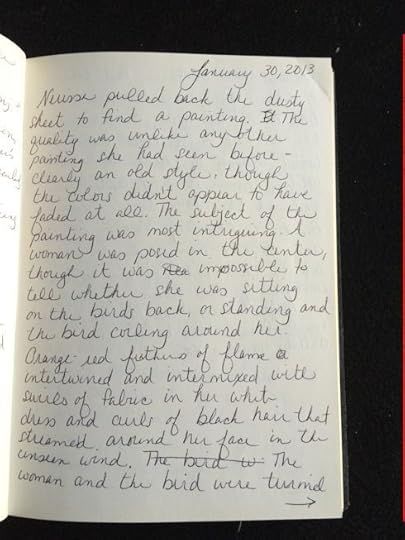 January 30, 2013
pulled back the dusty
sheet to find a painting. It The
quality was unlike any other
painting she had seen before -
clearly an old style, though
the colors didn't appear to have
faded at all. The subject of the
painting was most intriguing. A
woman was posed in the center,
though it was impossible to
tell whether she was sitting
on the birds back, or standing and
the bird coiling around her.
Orange-red feathers of flame
intertwined and intermixed with
swirls of fabric in her white
dress and curls of black hair that
streamed around her face in the
unseen wind. The bird w The
woman and the bird were turned
→